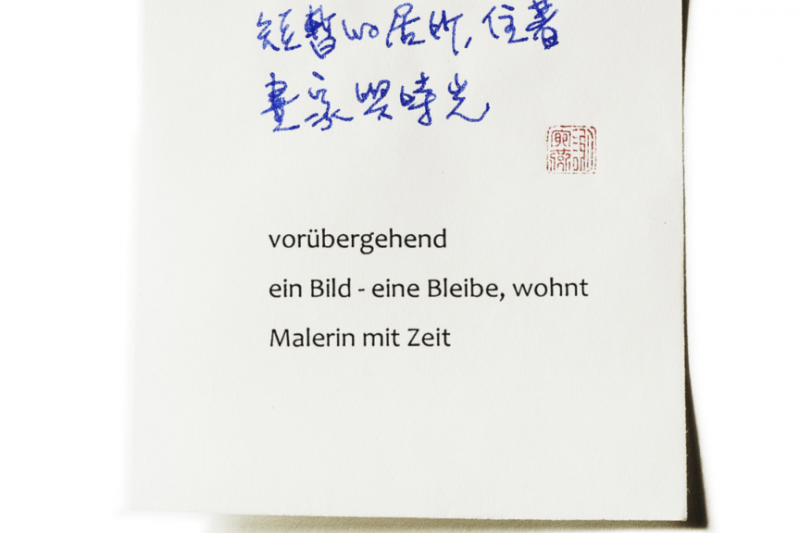 短暫的居所,住著
畫家與時光
vorübergehend
ein Bild - eine Bleibe, wohnt
Malerin mit Zeit